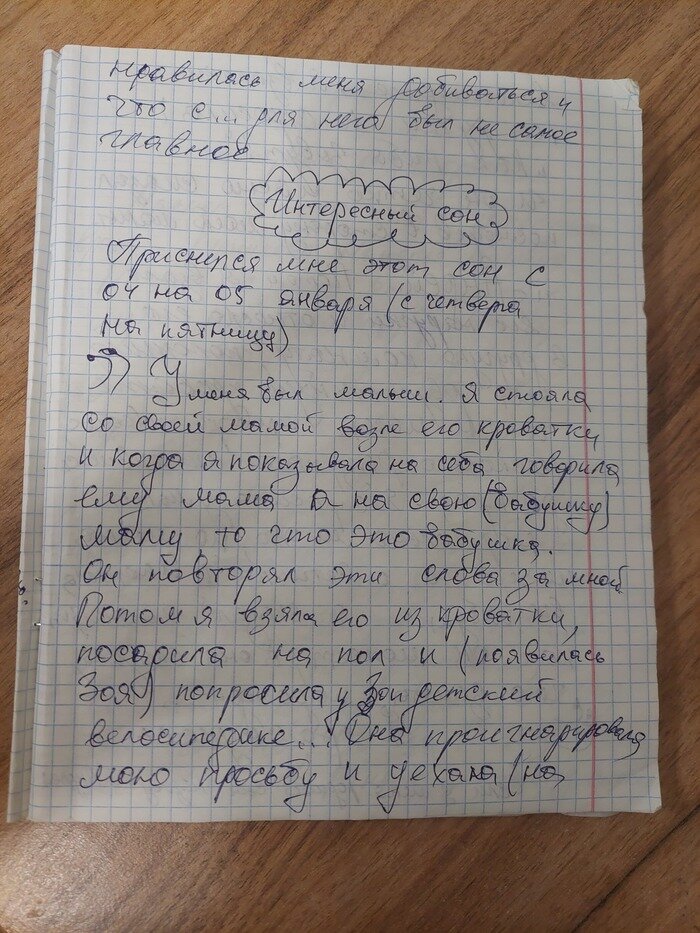 нравилась меня добиваться и
что с... для него был не самое
главное
Интересный сон
Приснился мне этот сон с
04 на 05 января (с четверга
на пятницу)
У меня был малыш. Я стояла
со своей мамой возле его кроватки
и когда я показывала на себя говорила
ему мама а на свою (бабушку)
маму, то что это бабушка.
Он повторял эти слова за мной.
Потом я взяла его из кроватки,
посадила на пол и (появилась
Зоя) попросила у Зои детский
велосипедике... Она проигнарировала
мою просьбу и уехала (на